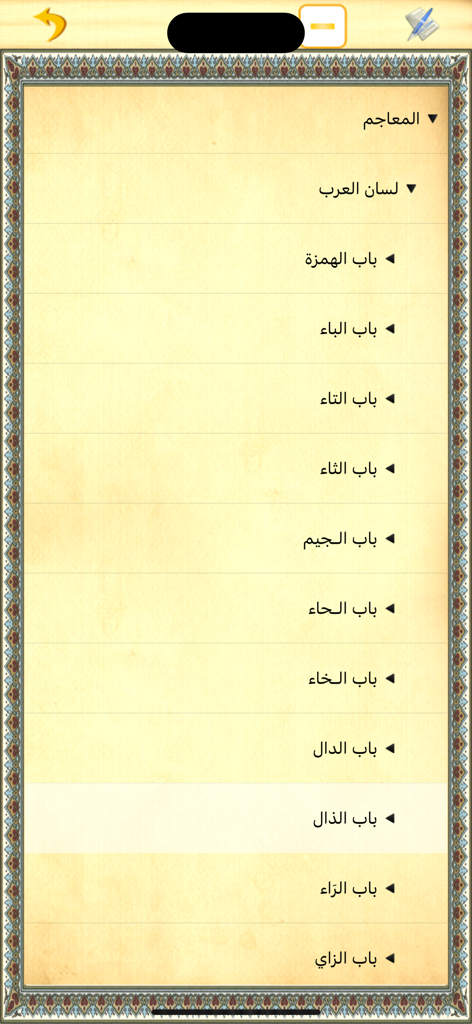 المعاجم
لسان العرب
باب الهمزة
باب الباء
باب التاء
باب الثاء
باب الـجيم
باب الـحاء
باب الـخاء
باب الدال
باب الذال
باب الرَاء
باب الزاي